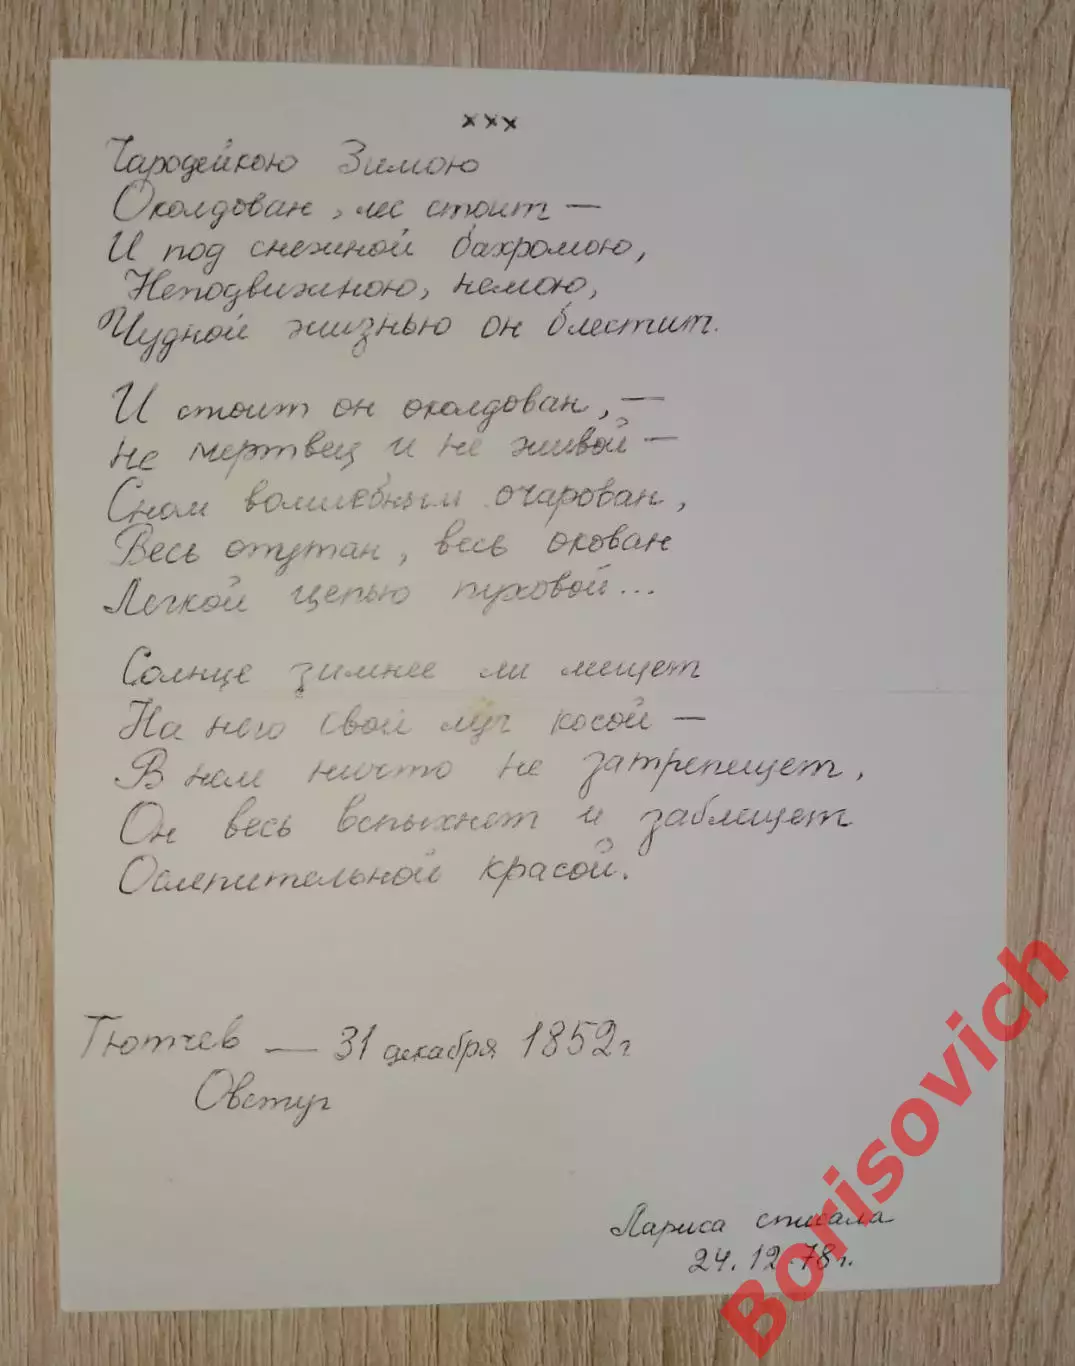 ххх
Чародейкою Зимою
Околдован, лес стоит —
И под снежной бахромою,
Неподвижною, немою,
Чудной жизнью он блестит.
И стоит он околдован, —
Не мертвец и не живой —
Сном волшебным очарован,
Весь опутан, весь окован
Легкой цепью пуховой...
Солнце зимнее ли мещет
На него свой луч косой —
В нем ничто не затрепещет,
Он весь вспыхнет и заблещет
Ослепительной красой.
Тютчев — 31 декабря 1852 г
Овстуг
Лариса списала
24.12.78 г.
Borisovich